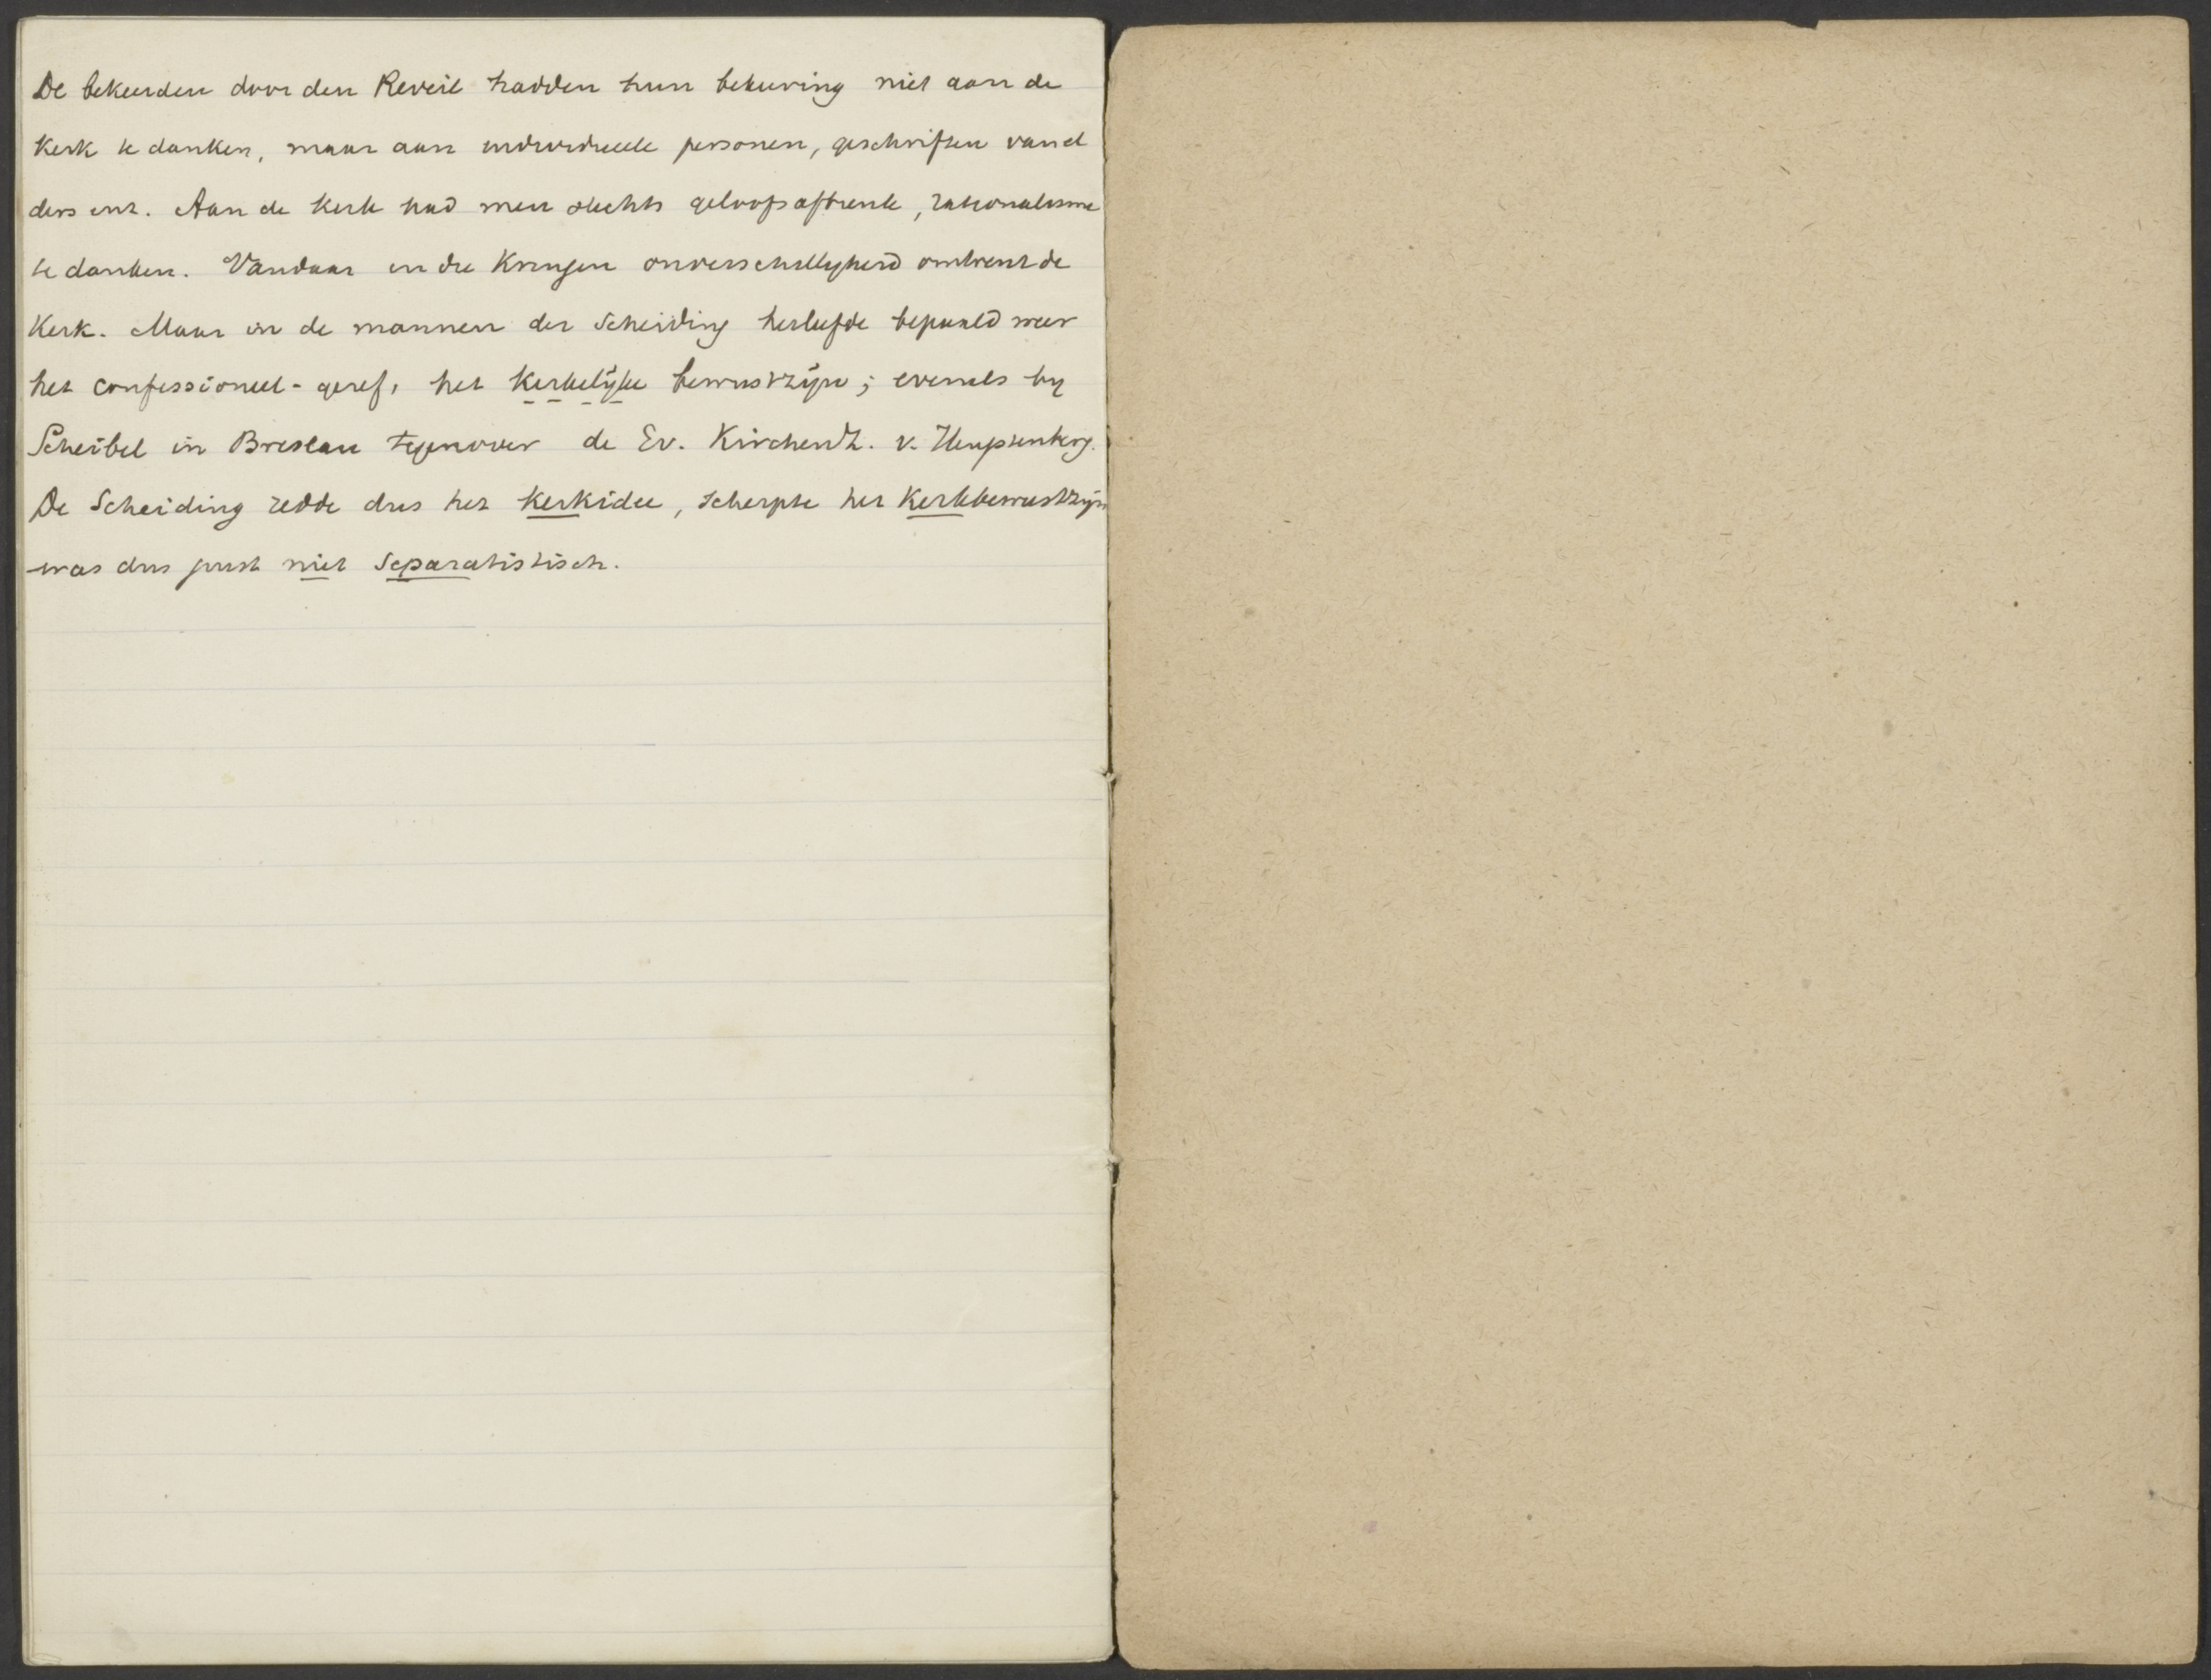 De bekeerden door den Reveil hadden hun bekeering niet aan de
Kerk te danken, maar aan individueele personen, geschriften van el
ders enz. Aan de Kerk had men slechts geloofsaftrenk, rationalisme
te danken. Vandaar in die Kringen onverschilligheid omtrent de
Kerk. Maar in de mannen der Scheiding herleefde bepaald weer
het confessioneel-geref, het Kerkelijke bewustzijn; evenals by
Scheibel in Breslau tegenover de Ev. Kirchenz. v. Hengstenberg.
De Scheiding redde dus het Kerkidee, scherpte het Kerkbewustzijn
was dus juist niet Separatistisch.